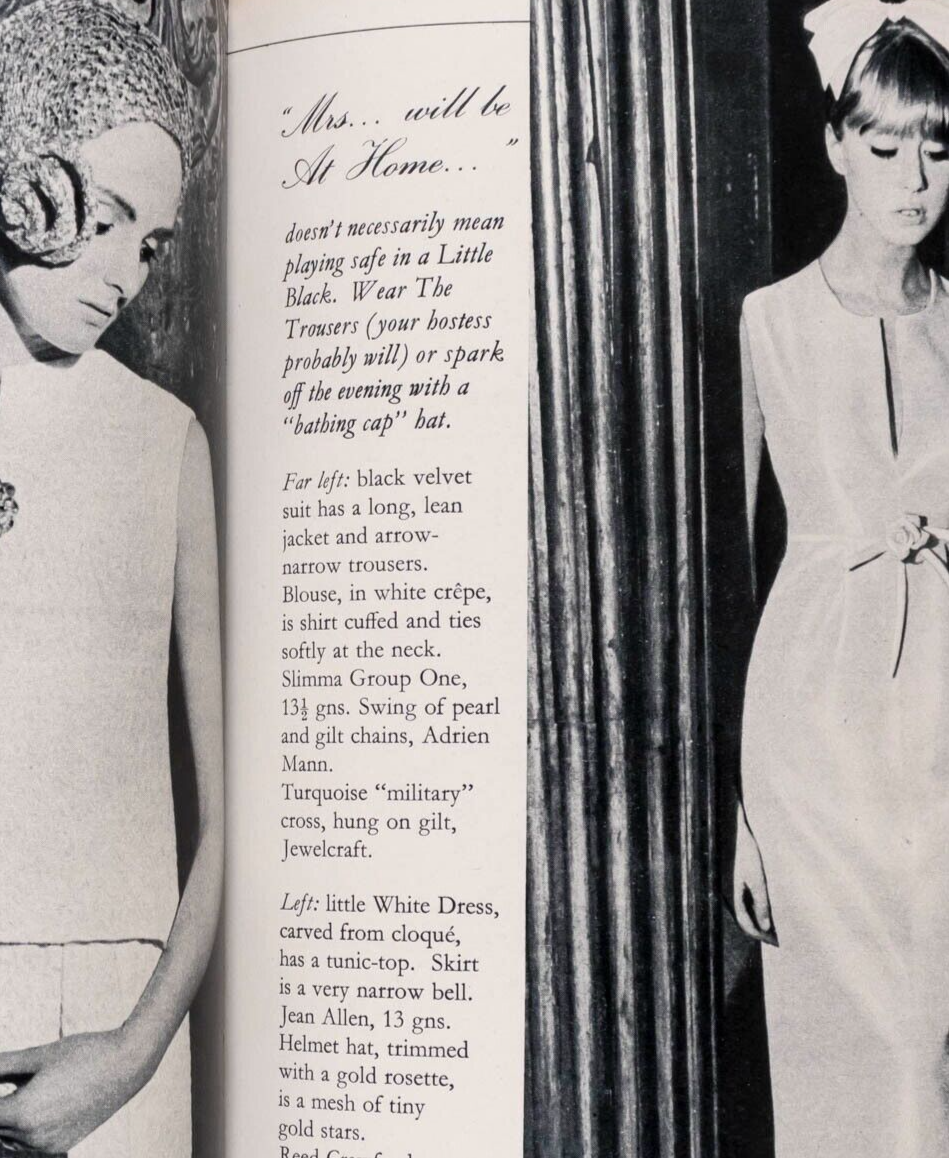 “Mrs... will be
At Home... ”
doesn't necessarily mean
playing safe in a Little
Black. Wear The
Trousers (your hostess
probably will) or spark
off the evening with a
“bathing cap” hat.
Far left: black velvet
suit has a long, lean
jacket and arrow-
narrow trousers.
Blouse, in white crêpe,
is shirt cuffed and ties
softly at the neck.
Slimma Group One,
13½ gns. Swing of pearl
and gilt chains, Adrien
Mann.
Turquoise “military”
cross, hung on gilt,
Jewelcraft.
Left: little White Dress,
carved from cloqué,
has a tunic-top. Skirt
is a very narrow bell.
Jean Allen, 13 gns.
Helmet hat, trimmed
with a gold rosette,
is a mesh of tiny
gold stars.